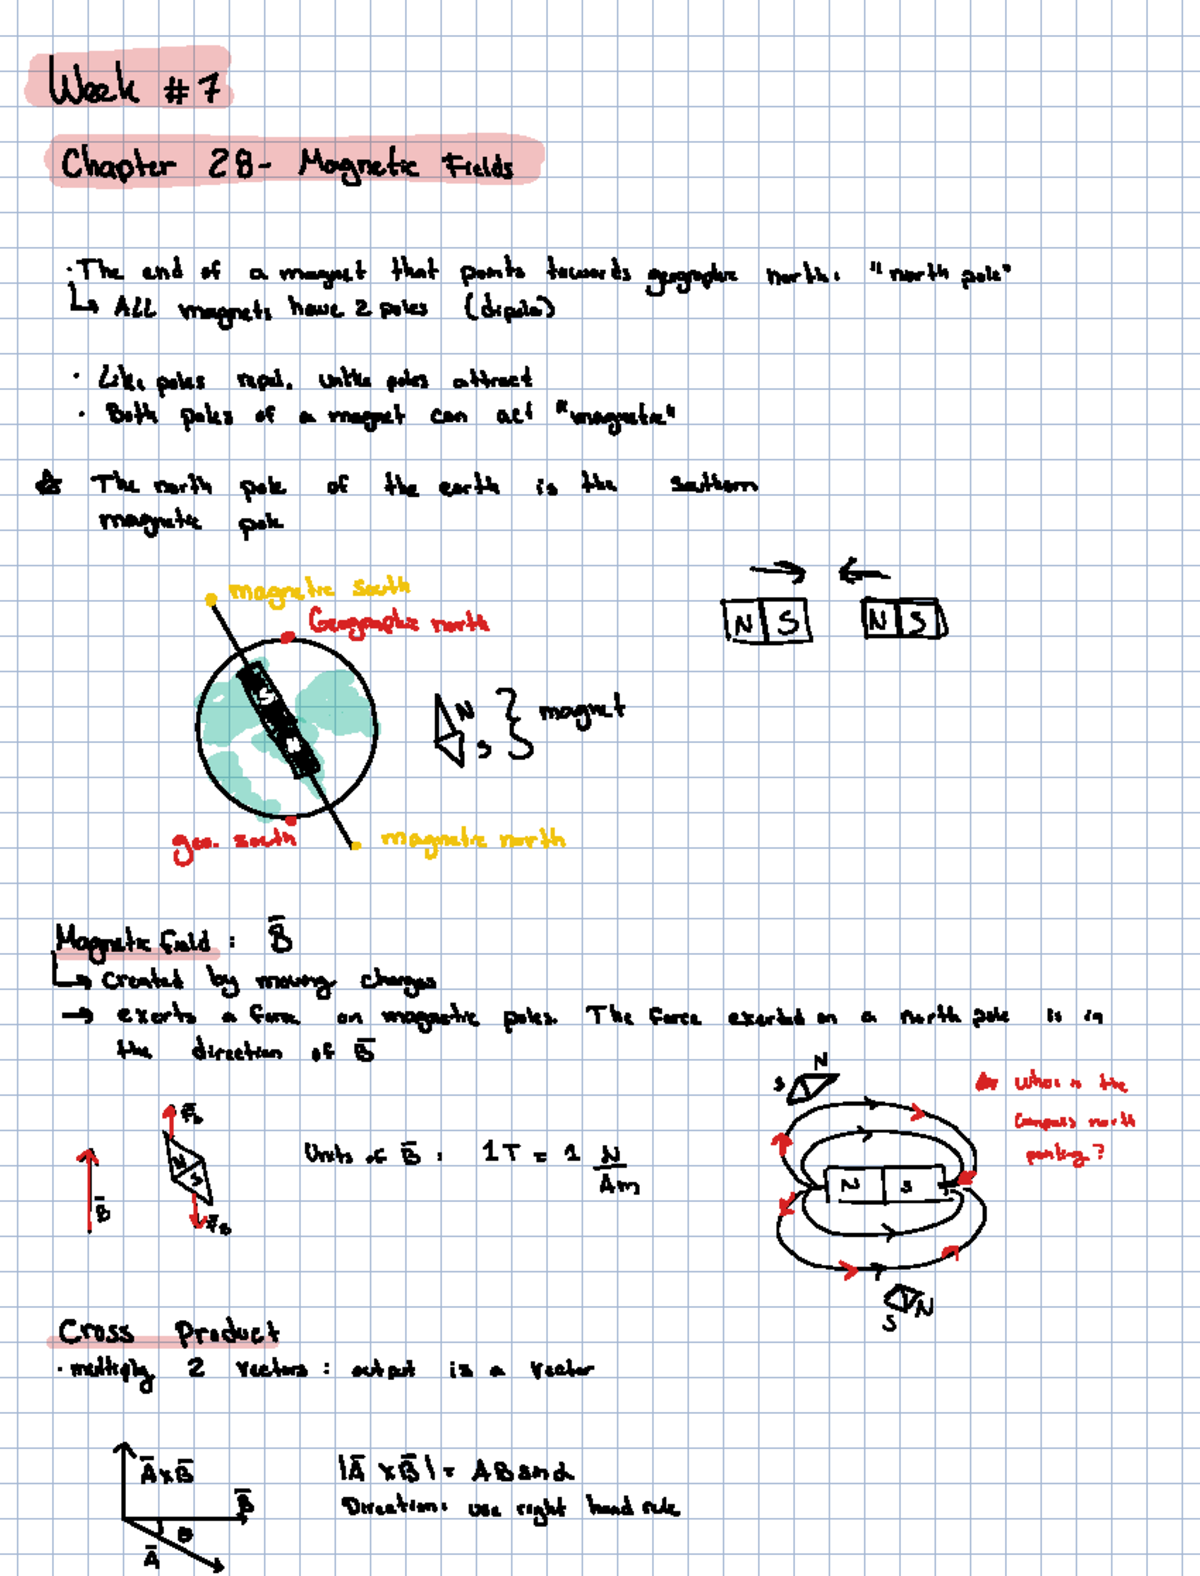 Week #7
Chapter 28- Magnetic Fields
· The end of a magnet that points towards geographic north: "north pole"
↳ ALL magnets have 2 poles (dipole)
· Like poles repel, unlike poles attract
· Both poles of a magnet can act "magnetic"
☆ The north pole of the earth is the southern
magnetic pole
magnetic south
Geographic north
N S N S
N
S
} magnet
geo. south
magnetic north
Magnetic field: B̄
↳ created by moving charges
→ exerts a force on magnetic poles. The force exerted on a north pole is in
the direction of B̄
N
S
☆ Where is the
compass north
pointing?
F̄B
N
S
B̄
F̄B
Units of B̄: 1T = 1 N/Am
N S
S N
Cross Product
· multiply 2 vectors: output is a vector
ĀxB̄
B̄
θ
Ā
|Ā x B̄| = AB sin α
Direction: use right hand rule